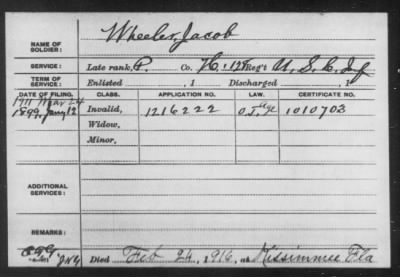 Wheeler, Jacob
NAME OF SOLDIER:
SERVICE: Late rank, P. Co. H, 128 Reg't U. S. C. Inf
TERM OF SERVICE: Enlisted , 1 Discharged , 1
DATE OF FILING. CLASS. APPLICATION NO. LAW. CERTIFICATE NO.
1911 Mar 24
1899, Jany 12 Invalid, 1216222 O.I. Age 1010703
Widow,
Minor,
ADDITIONAL SERVICES:
REMARKS:
Died Feb 24, 1916, at Kissimmee Fla